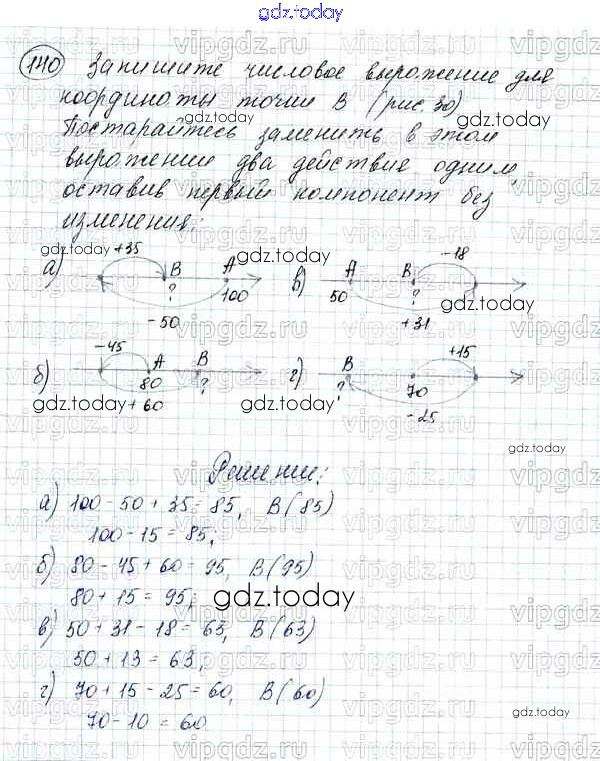 gdz.today
140 Запишите числовое выражение для
координаты точки В (рис. 30)
Постарайтесь заменить в этом
выражении два действия одним,
оставив первый компонент без
изменения:
а) +35 В А ? 100 -50
в) -18 А В 50 ? +31
б) -45 А В 80 ? +60
г) +15 В ? 70 -25
Решение:
а) 100 - 50 + 35 = 85, В(85)
100 - 15 = 85;
б) 80 - 45 + 60 = 95, В(95)
80 + 15 = 95;
в) 50 + 31 - 18 = 63, В(63)
50 + 13 = 63;
г) 70 + 15 - 25 = 60, В(60)
70 - 10 = 60
gdz.today
gdz.today
gdz.today
gdz.today
gdz.today
gdz.today
gdz.today
gdz.today
gdz.today
gdz.today
vipgdz.ru